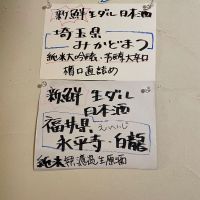 新鮮 生ダル 日本酒
埼玉県
みかどまつ
純米大吟醸・季節大辛口
樽口直詰め
新鮮 生ダル
日本酒
福井県
えいへいじ
永平寺・白龍
純米無濾過生原酒